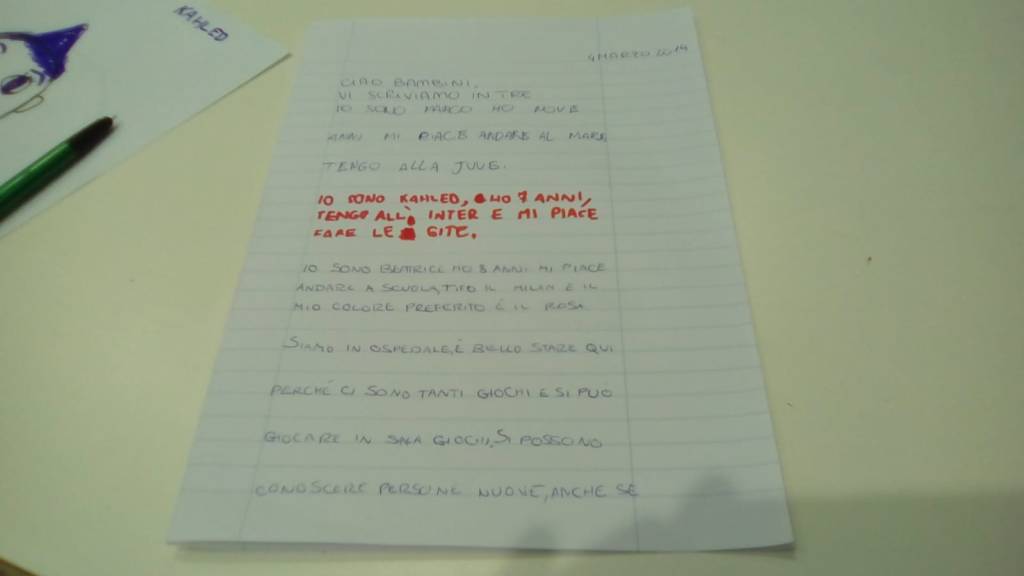 KAHLED
4 MARZO 2014
CIAO BAMBINI,
VI SCRIVIAMO IN TRE
IO SONO MARCO HO NOVE
ANNI MI PIACE ANDARE AL MARE
TENGO ALLA JUVE.
IO SONO KAHLED, HO 7 ANNI,
TENGO ALL' INTER E MI PIACE
FARE LE GITE.
IO SONO BEATRICE HO 8 ANNI MI PIACE
ANDARE A SCUOLA, TIFO IL MILAN E IL
MIO COLORE PREFERITO È IL ROSA
SIAMO IN OSPEDALE, È BELLO STARE QUI
PERCHÉ CI SONO TANTI GIOCHI E SI PUÒ
GIOCARE IN SALA GIOCHI, SI POSSONO
CONOSCERE PERSONE NUOVE, ANCHE SE